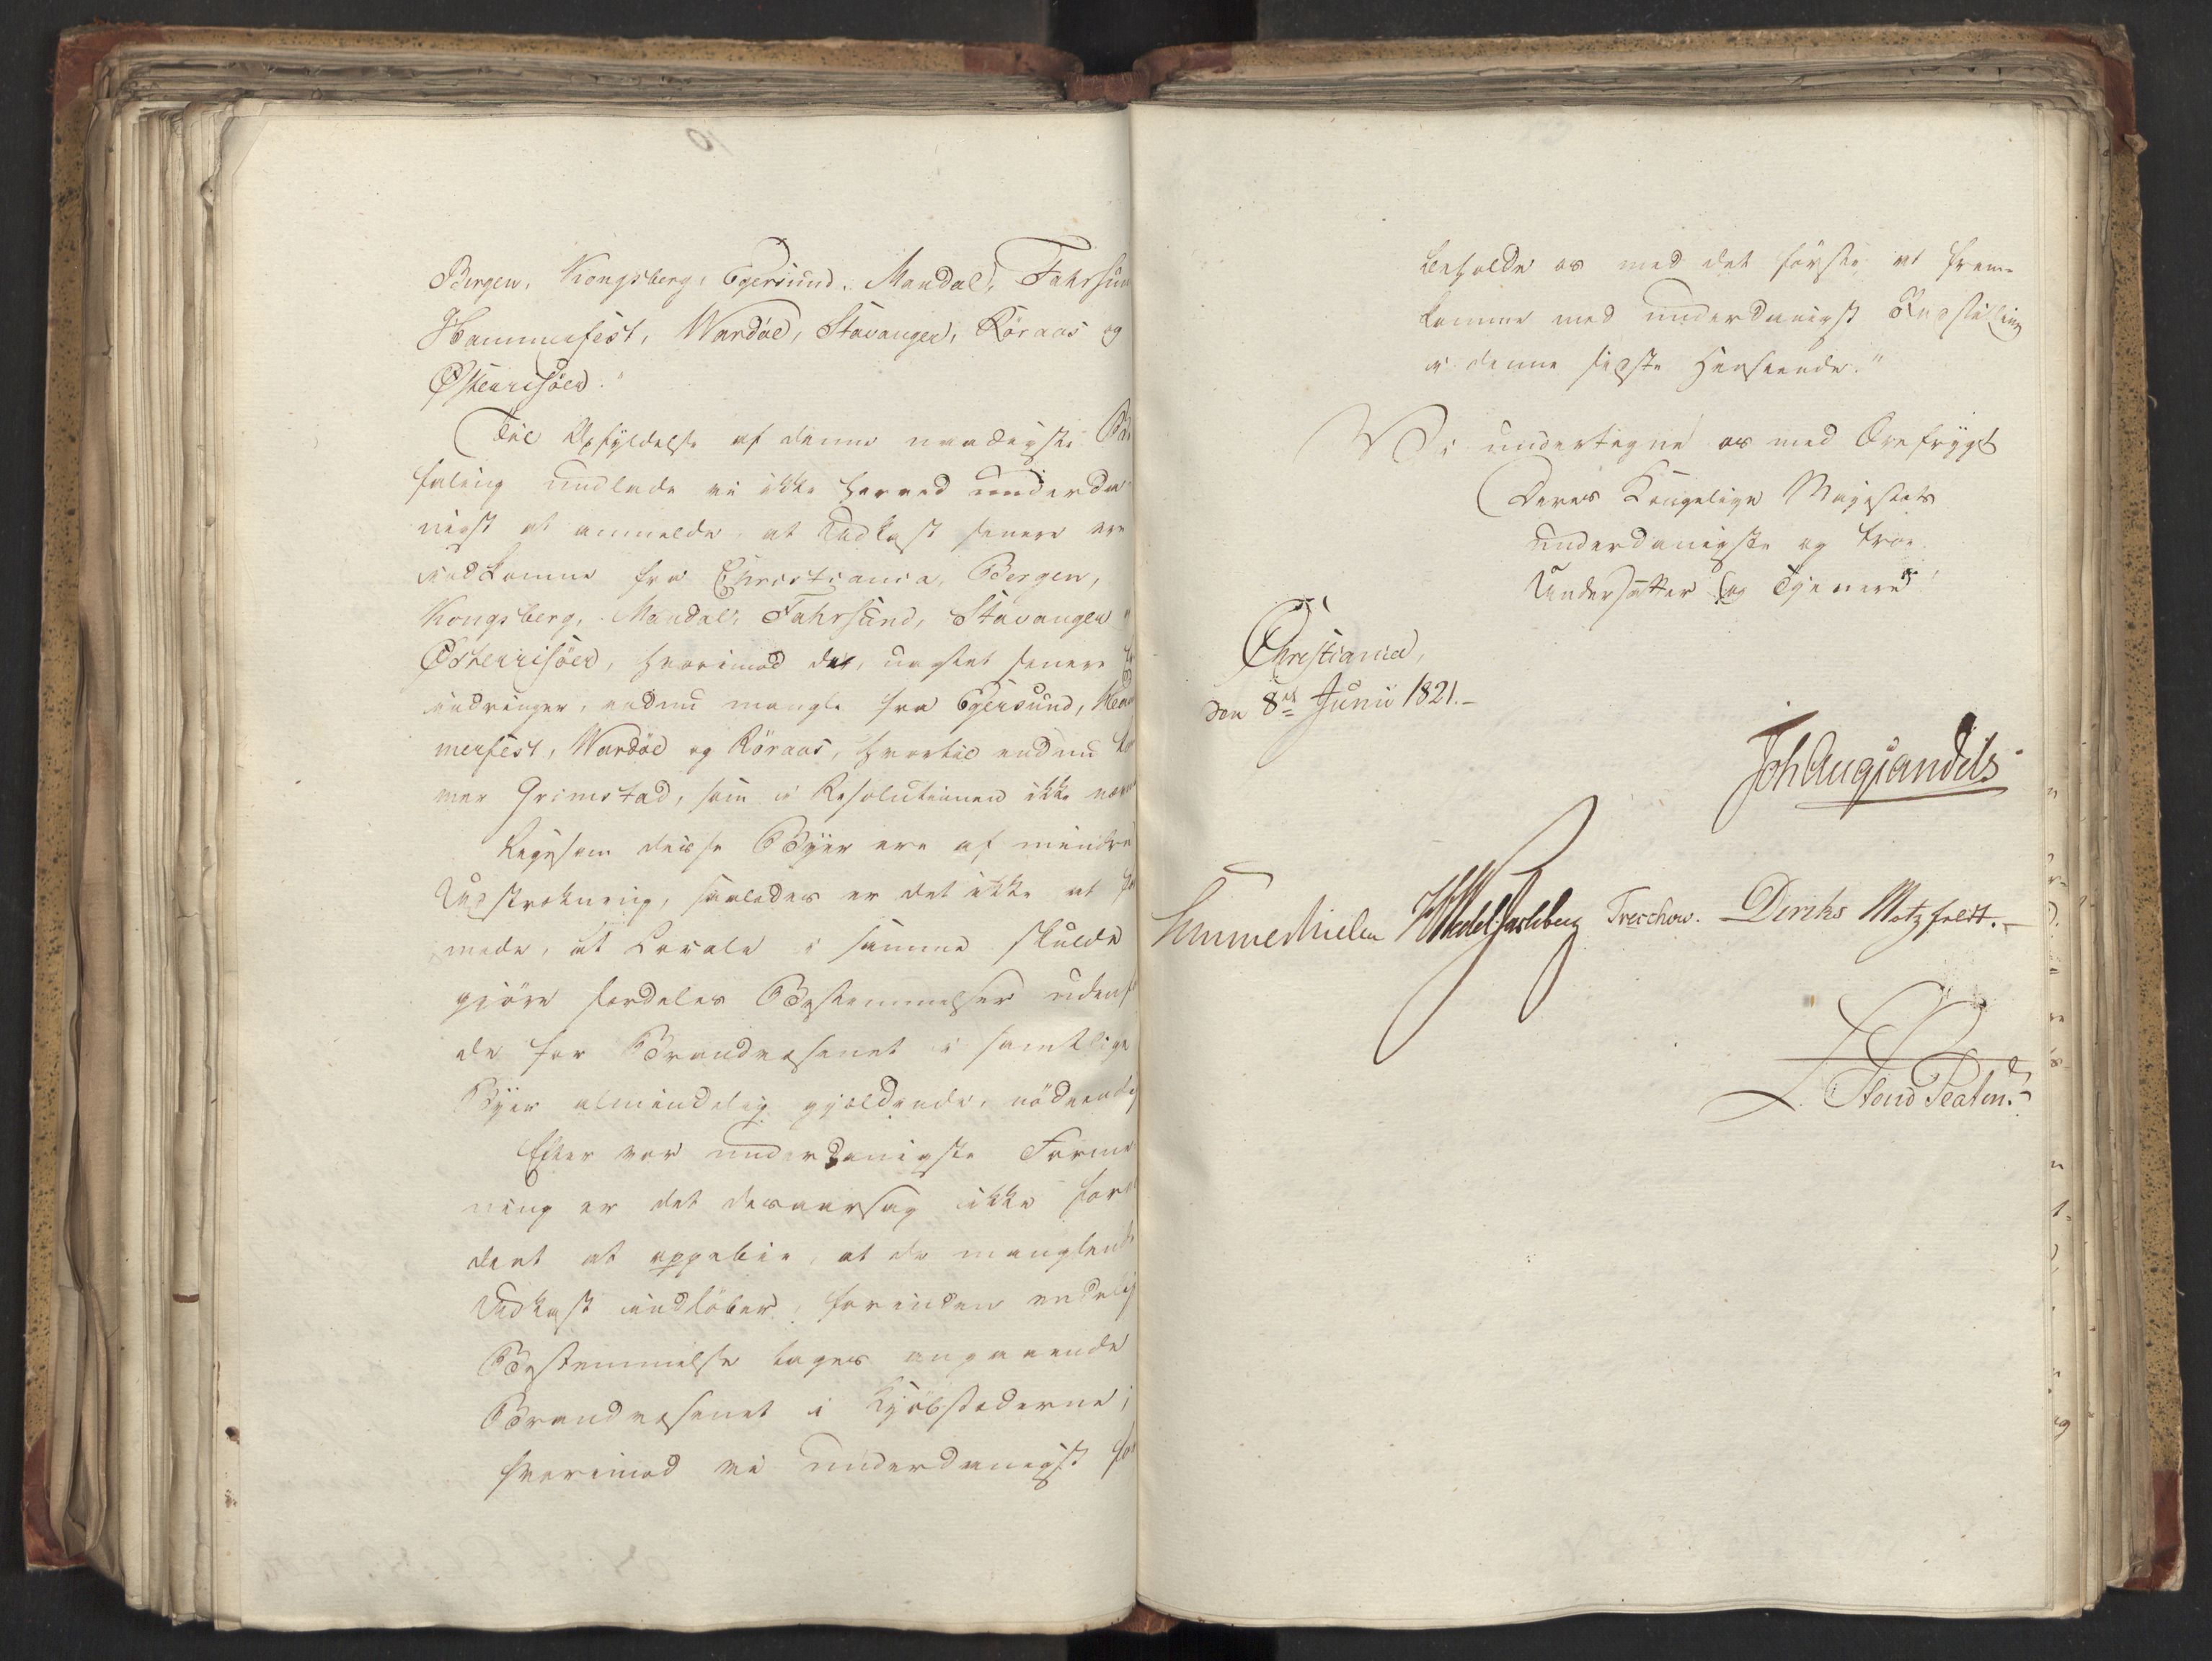 Bergen, Kongsberg, Egersund, Mandal, Fahrsun
Hammerfest, Wardöe, Stavanger, Röraas og
Østerrisöer."
Til Opfyldelse af denne naadigste Be
faling undlade vi ikke herved underda
nigst at anmelde, at Udkast senere ere
indkomne fra Christiania, Bergen,
Kongsberg, Mandal, Fahrsund, Stavanger
Østerrisöer, hvorimod det, uagtet senere
indringer, endnu mangle fra Egersund, Ham
merfest, Wardöe og Röraas, hvortil endnu kom
mer Grimstad, som i Resolutionen ikke nævn
Ligesom disse Byer ere af mindre
Udstrækning, saaledes er det ikke at for
mode, at Locale i samme skulde
gjöre særdeles Bestemmelser udenfor
de for Brandvæsenet i samtlige
Byer almindelig gjældende, nödvendig
Efter vor underdanigste Forme
ning er det desaarsag ikke for
dent at oppebie, at de manglende
Udkast indlöber, forinden endelig
Bestemmelse tages angaaende
Brandvæsenet i Kjöbstæderne;
hvorimod vi underdanigst for
beholde os med det förste at frem
komme med underdanigst Indstilling
i denne sidste Henseende."
Vi undertegne os med Ærefrygt
Deres Kongelige Majestets
underdanigste og troe
Undersatter og Tjenere
Christiania,
den 8de Junii 1821.
Joh Aug Sandels
Sommerhielm HWedel Jarlsberg Treschow. Diriks Motzfeldt.
L. Stoud Platou.